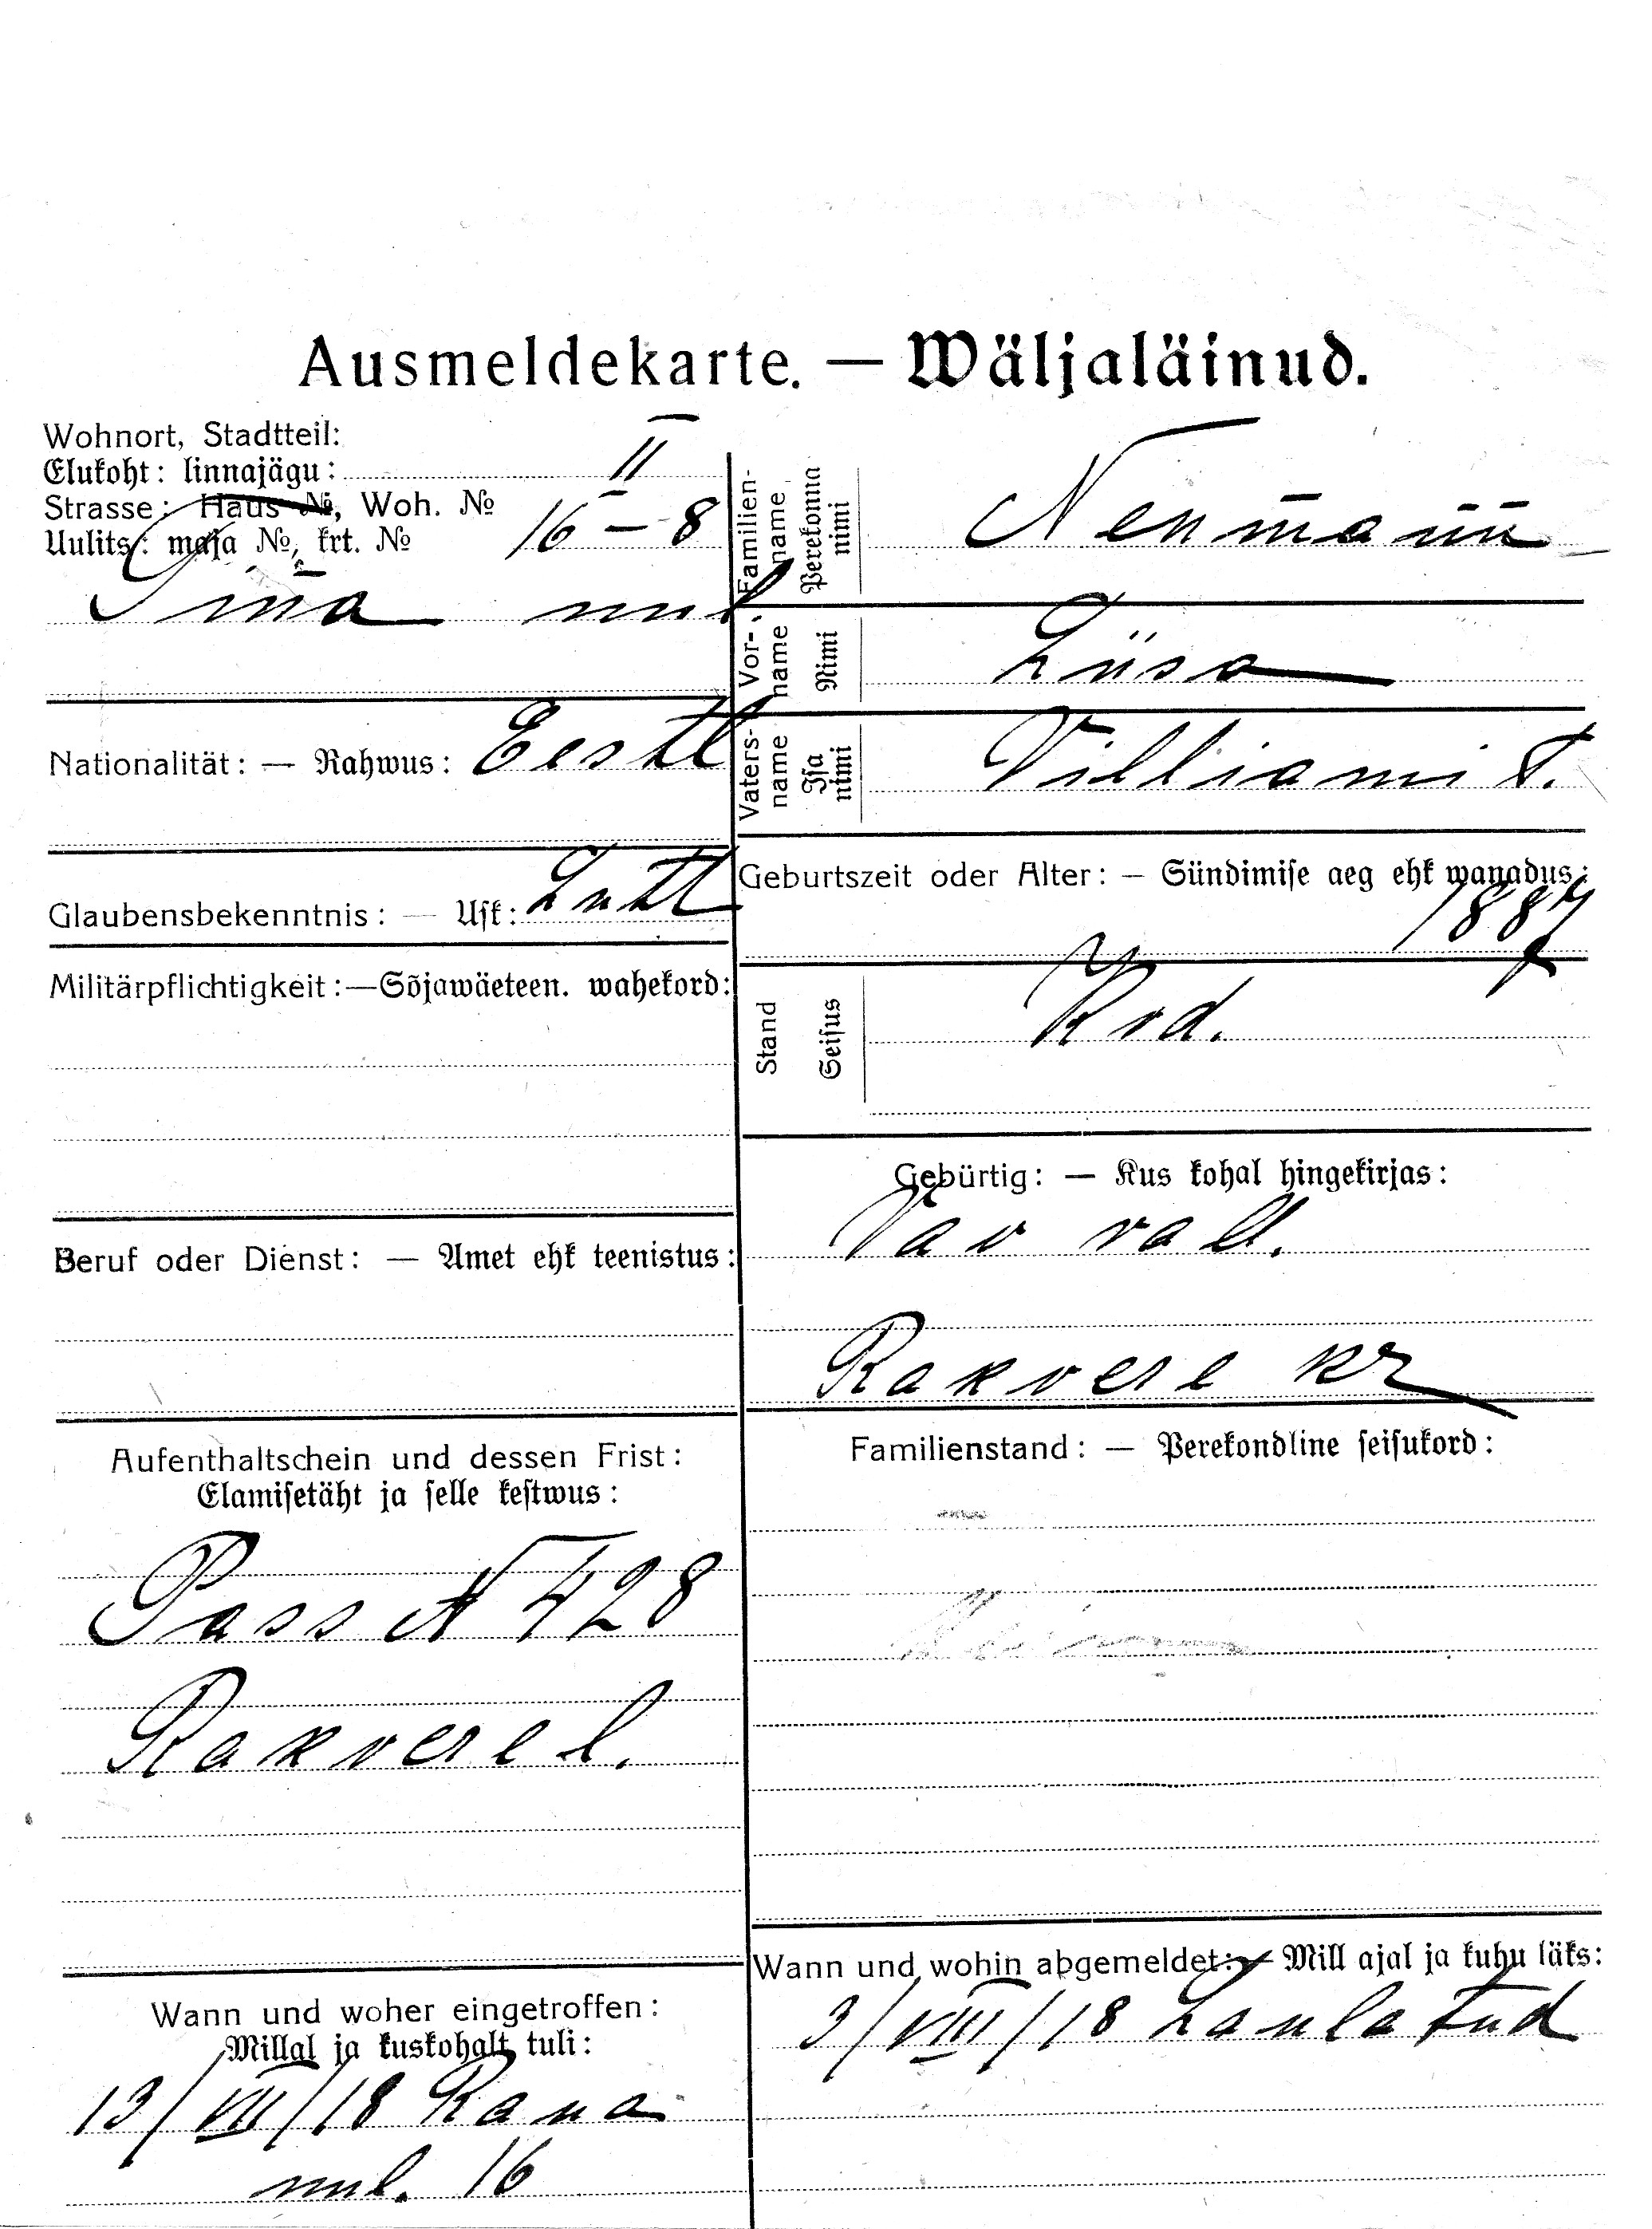 Ausmeldekarte. — Wäljaläinud.
Wohnort, Stadtteil:
Elukoht: linnajägu: II
Strasse: Haus №, Woh. №
Uulits: maja №, krt. № 16 – 8
uul.
Nationalität: — Rahwus: Eestl
Glaubensbekenntnis: — Usk: Lutl
Militärpflichtigkeit:—Sõjawäeteen. wahekord:
Beruf oder Dienst: — Amet ehk teenistus:
Aufenthaltschein und dessen Frist:
Elamisetäht ja selle kestwus:
Pass N 428
Rakvere l.
Wann und woher eingetroffen:
Millal ja kuskohalt tuli:
13/VII/18 Rana
uul. 16
Familien-
name
Perekonna
nimi
Neumann
Vor-
name
Nimi
Liisa
Vaters-
name
Isa
nimi
Villiami t.
Geburtszeit oder Alter: — Sündimise aeg ehk wanadus:
1887
Stand
Seisus
Gebürtig: — Kus kohal hingekirjas:
Vao vall.
Rakvere kr
Familienstand: — Perekondline seisukord:
Wann und wohin abgemeldet: — Mill ajal ja kuhu läks:
3/VIII/18 Laulatud